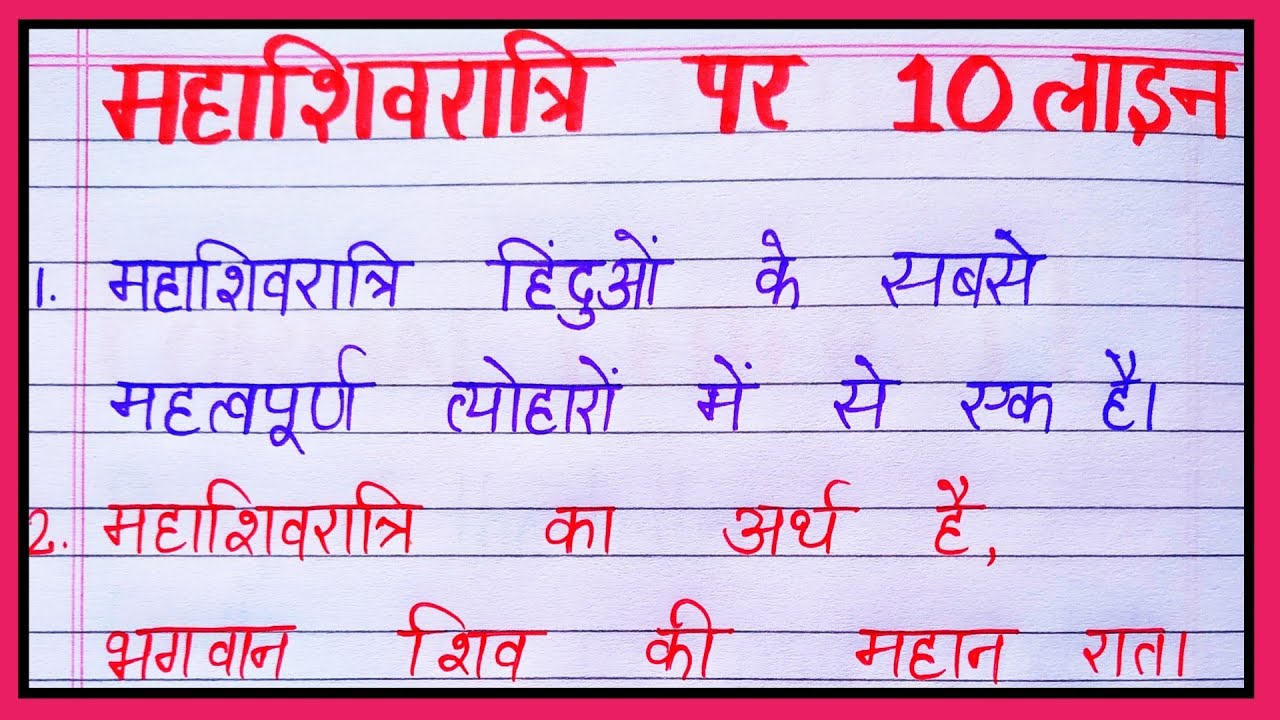 महाशिवरात्रि पर 10 लाइन
1. महाशिवरात्रि हिंदुओं के सबसे
महत्वपूर्ण त्योहारों में से एक है।
2. महाशिवरात्रि का अर्थ है,
भगवान शिव की महान रात।